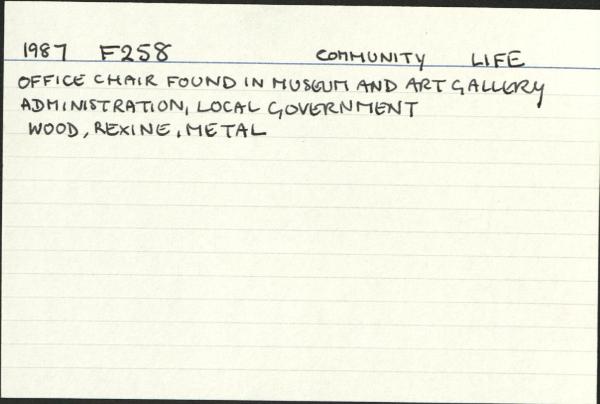 1987 F258 COMMUNITY LIFE
OFFICE CHAIR FOUND IN MUSEUM AND ART GALLERY
ADMINISTRATION, LOCAL GOVERNMENT
WOOD, REXINE, METAL